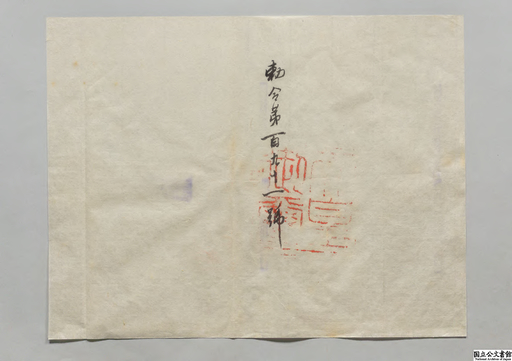 勅令第百九十一號
国立公文書館
National Archives of Japan